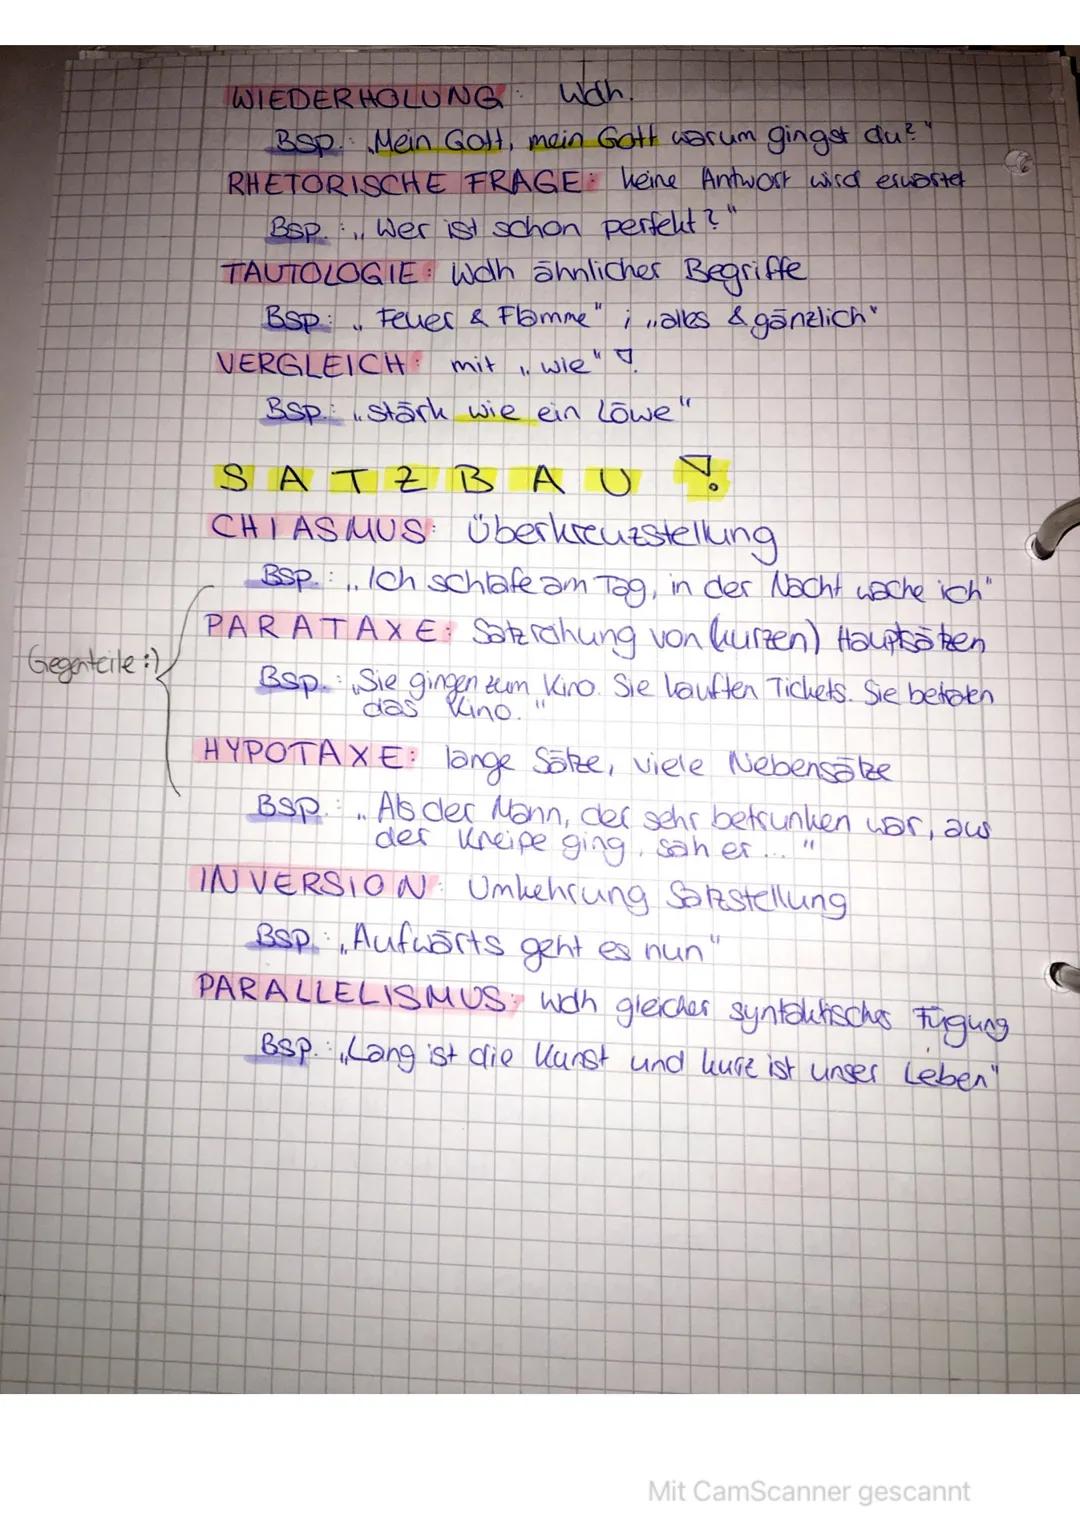 WIEDERHOLUNG: Wdh.
Bsp.: „Mein Gott, mein Gott warum gingst du?"
RHETORISCHE FRAGE: keine Antwort wird erwartet
Bsp.: „Wer ist schon perfekt?"
TAUTOLOGIE: Wdh ähnlicher Begriffe
Bsp.: „Feuer & Flamme" ; „alles & gänzlich"
VERGLEICH: mit „wie" !
Bsp.: „stark wie ein Löwe"
SATZBAU !
CHIASMUS: Überkreuzstellung
Bsp.: „Ich schlafe am Tag, in der Nacht wache ich"
PARATAXE: Satzreihung von (kurzen) Hauptsätzen
Gegenteile :)
Bsp.: „Sie gingen zum Kino. Sie kauften Tickets. Sie betraten
das Kino."
HYPOTAXE: lange Sätze, viele Nebensätze
Bsp.: „Als der Mann, der sehr betrunken war, aus
der Kneipe ging, sah er..."
INVERSION: Umkehrung Satzstellung
Bsp.: „Aufwärts geht es nun"
PARALLELISMUS: Wdh gleicher syntaktischer Fügung
Bsp.: „Lang ist die Kunst und kurz ist unser Leben"
Mit CamScanner gescannt